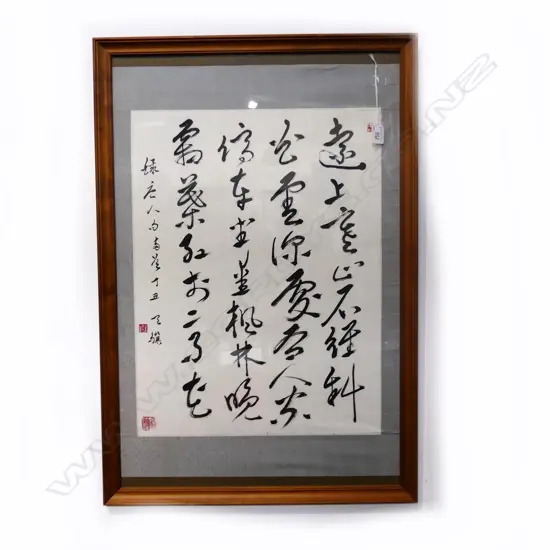 遠上寒山石徑斜
白雲深處有人家
停車坐愛楓林晚
霜葉紅於二月花
錄唐人句 丁丑